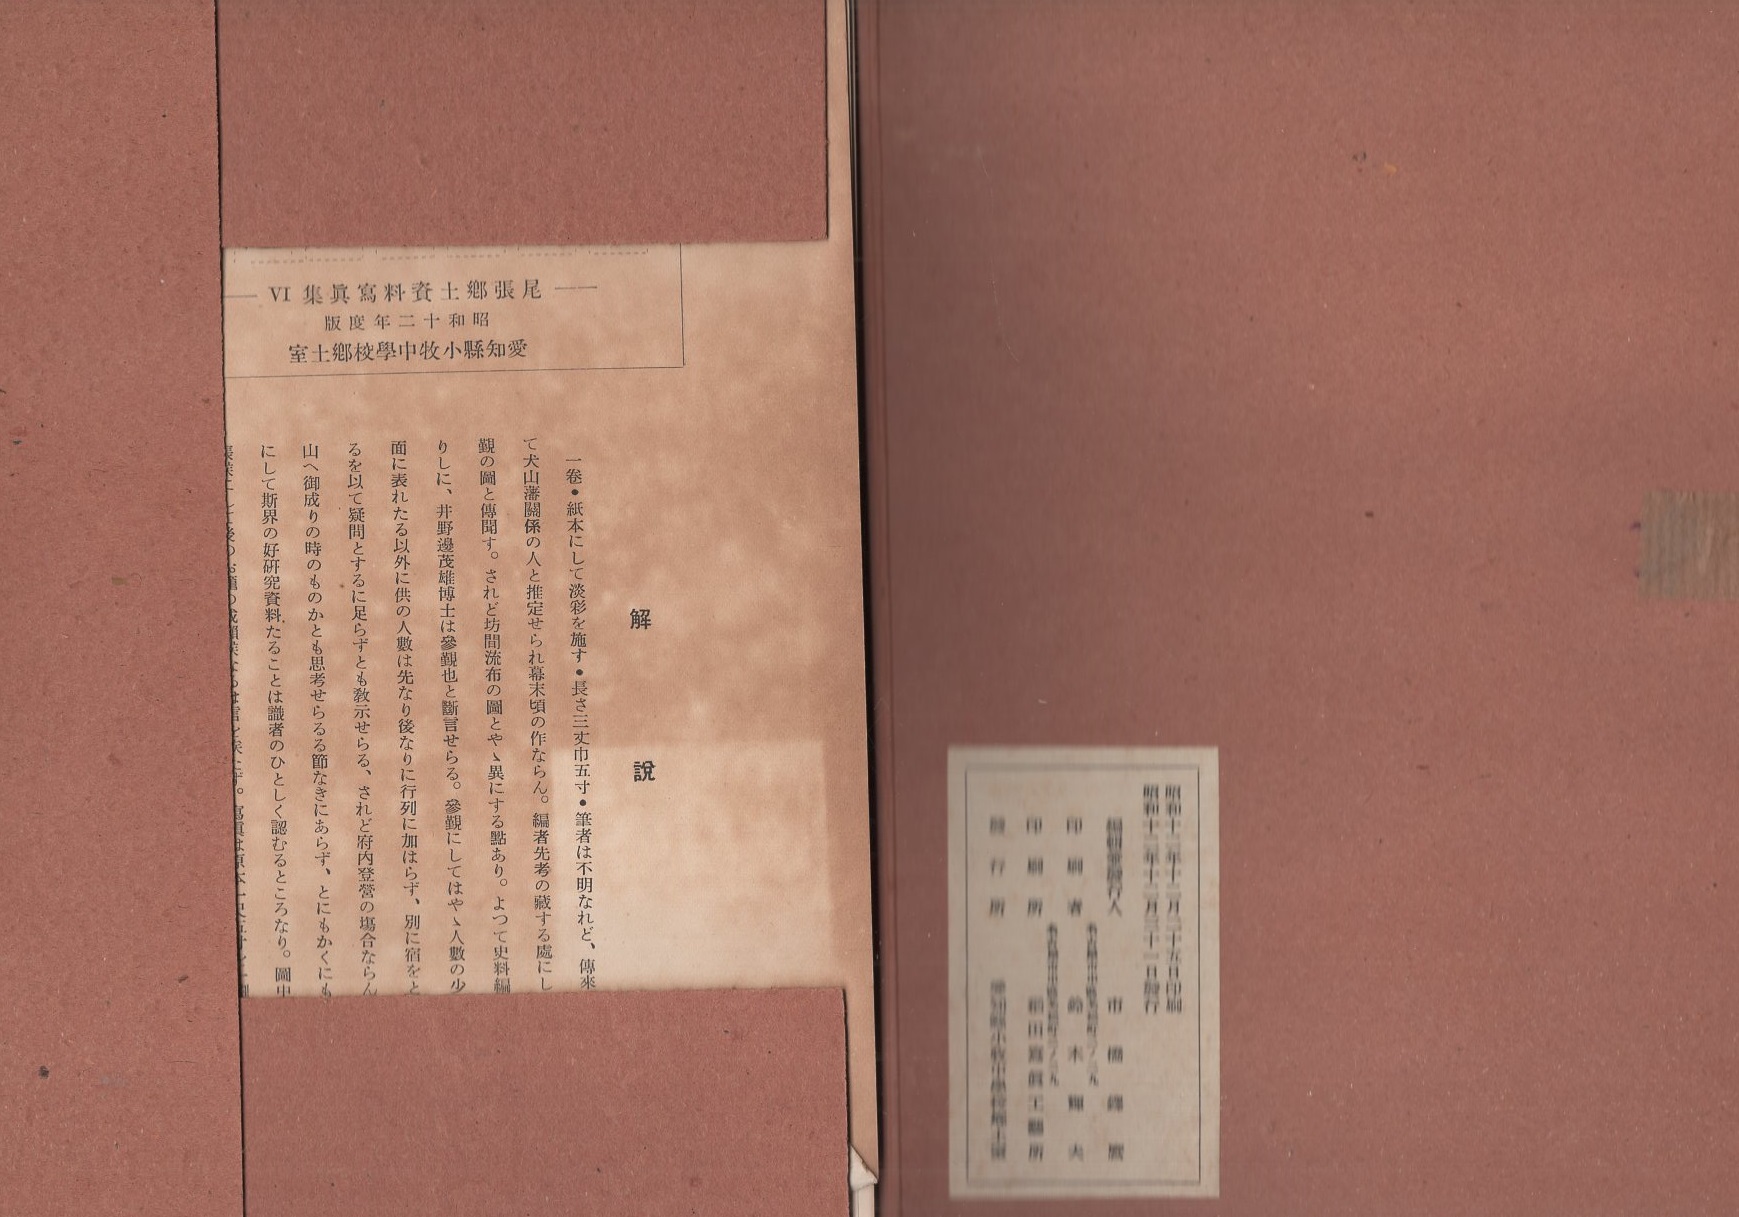 尾張鄕土資料寫眞集 VI
昭和十二年度版
愛知縣小牧中學校鄕土室
解說
一卷・紙本にして淡彩を施す・長さ三丈巾五寸・筆者は不明なれど、傳來
て犬山藩關係の人と推定せられ幕末頃の作ならん。編者先考の藏する處にし
覲の圖と傳聞す。されど坊間流布の圖とやゝ異にする點あり。よつて史料編
りしに、井野邊茂雄博士は參覲也と斷言せらる。參覲にしてはやゝ人數の少
面に表れたる以外に供の人數は先なり後なりに行列に加はらず、別に宿をと
るを以て疑問とするに足らずとも敎示せらる、されど府內登營の塲合ならん
山へ御成りの時のものかとも思考せらるる節なきにあらず、とにもかくにも
にして斯界の好硏究資料たることは識者のひとしく認むるところなり。圖中
昭和十二年十二月二十五日印刷
昭和十二年十二月三十一日發行
編輯兼發行人 市橋鐸
印刷者 鈴木輝夫
印刷所 稻田寫眞工藝所
發行所 愛知縣小牧中學校鄕土室